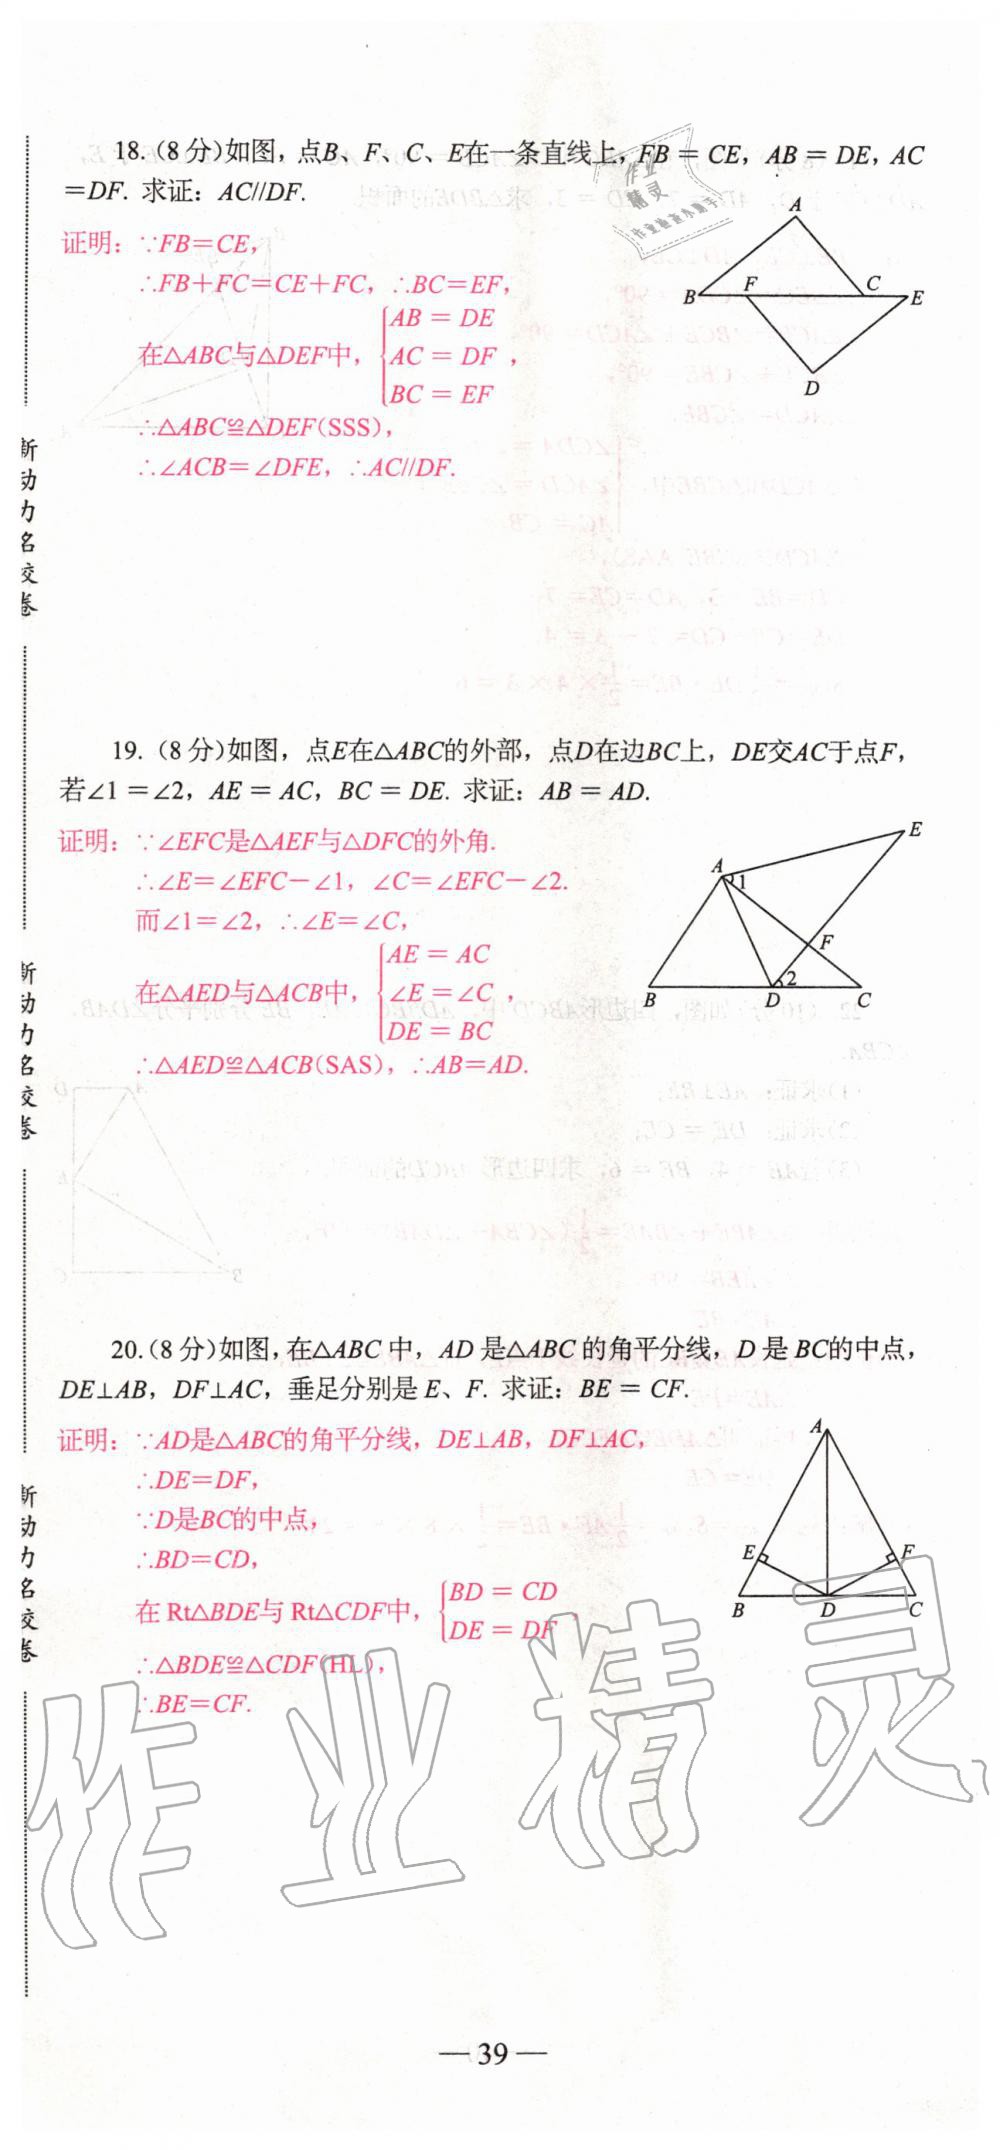 18.(8分)如图，点B、F、C、E在一条直线上，FB = CE，AB = DE，AC
=DF. 求证：AC//DF.
证明：∵FB=CE，
∴FB+FC=CE+FC，∴BC=EF，
在△ABC与△DEF中，{AB = DE
AC = DF，
BC = EF
∴△ABC≌△DEF(SSS)，
∴∠ACB=∠DFE，∴AC//DF.
A
B F C E
D
19.(8分)如图，点E在△ABC的外部，点D在边BC上，DE交AC于点F，
若∠1 =∠2，AE = AC，BC = DE. 求证：AB = AD.
证明：∵∠EFC是△AEF与△DFC的外角.
∴∠E=∠EFC-∠1，∠C=∠EFC-∠2.
而∠1=∠2，∴∠E=∠C，
在△AED与△ACB中，{AE = AC
∠E =∠C，
DE = BC
∴△AED≌△ACB(SAS)，∴AB=AD.
E
A 1
F
2
B D C
20.(8分)如图,在△ABC中，AD是△ABC的角平分线，D是BC的中点，
DE⊥AB，DF⊥AC，垂足分别是E、F. 求证：BE = CF.
证明：∵AD是△ABC的角平分线，DE⊥AB，DF⊥AC，
∴DE=DF，
∵D是BC的中点，
∴BD=CD，
在Rt△BDE与Rt△CDF中，{BD = CD
DE = DF，
∴△BDE≌△CDF(HL)，
∴BE=CF.
A
E F
B D C
新动力名校卷
新动力名校卷
新动力名校卷
作业精灵
作业
精灵
— 39 —